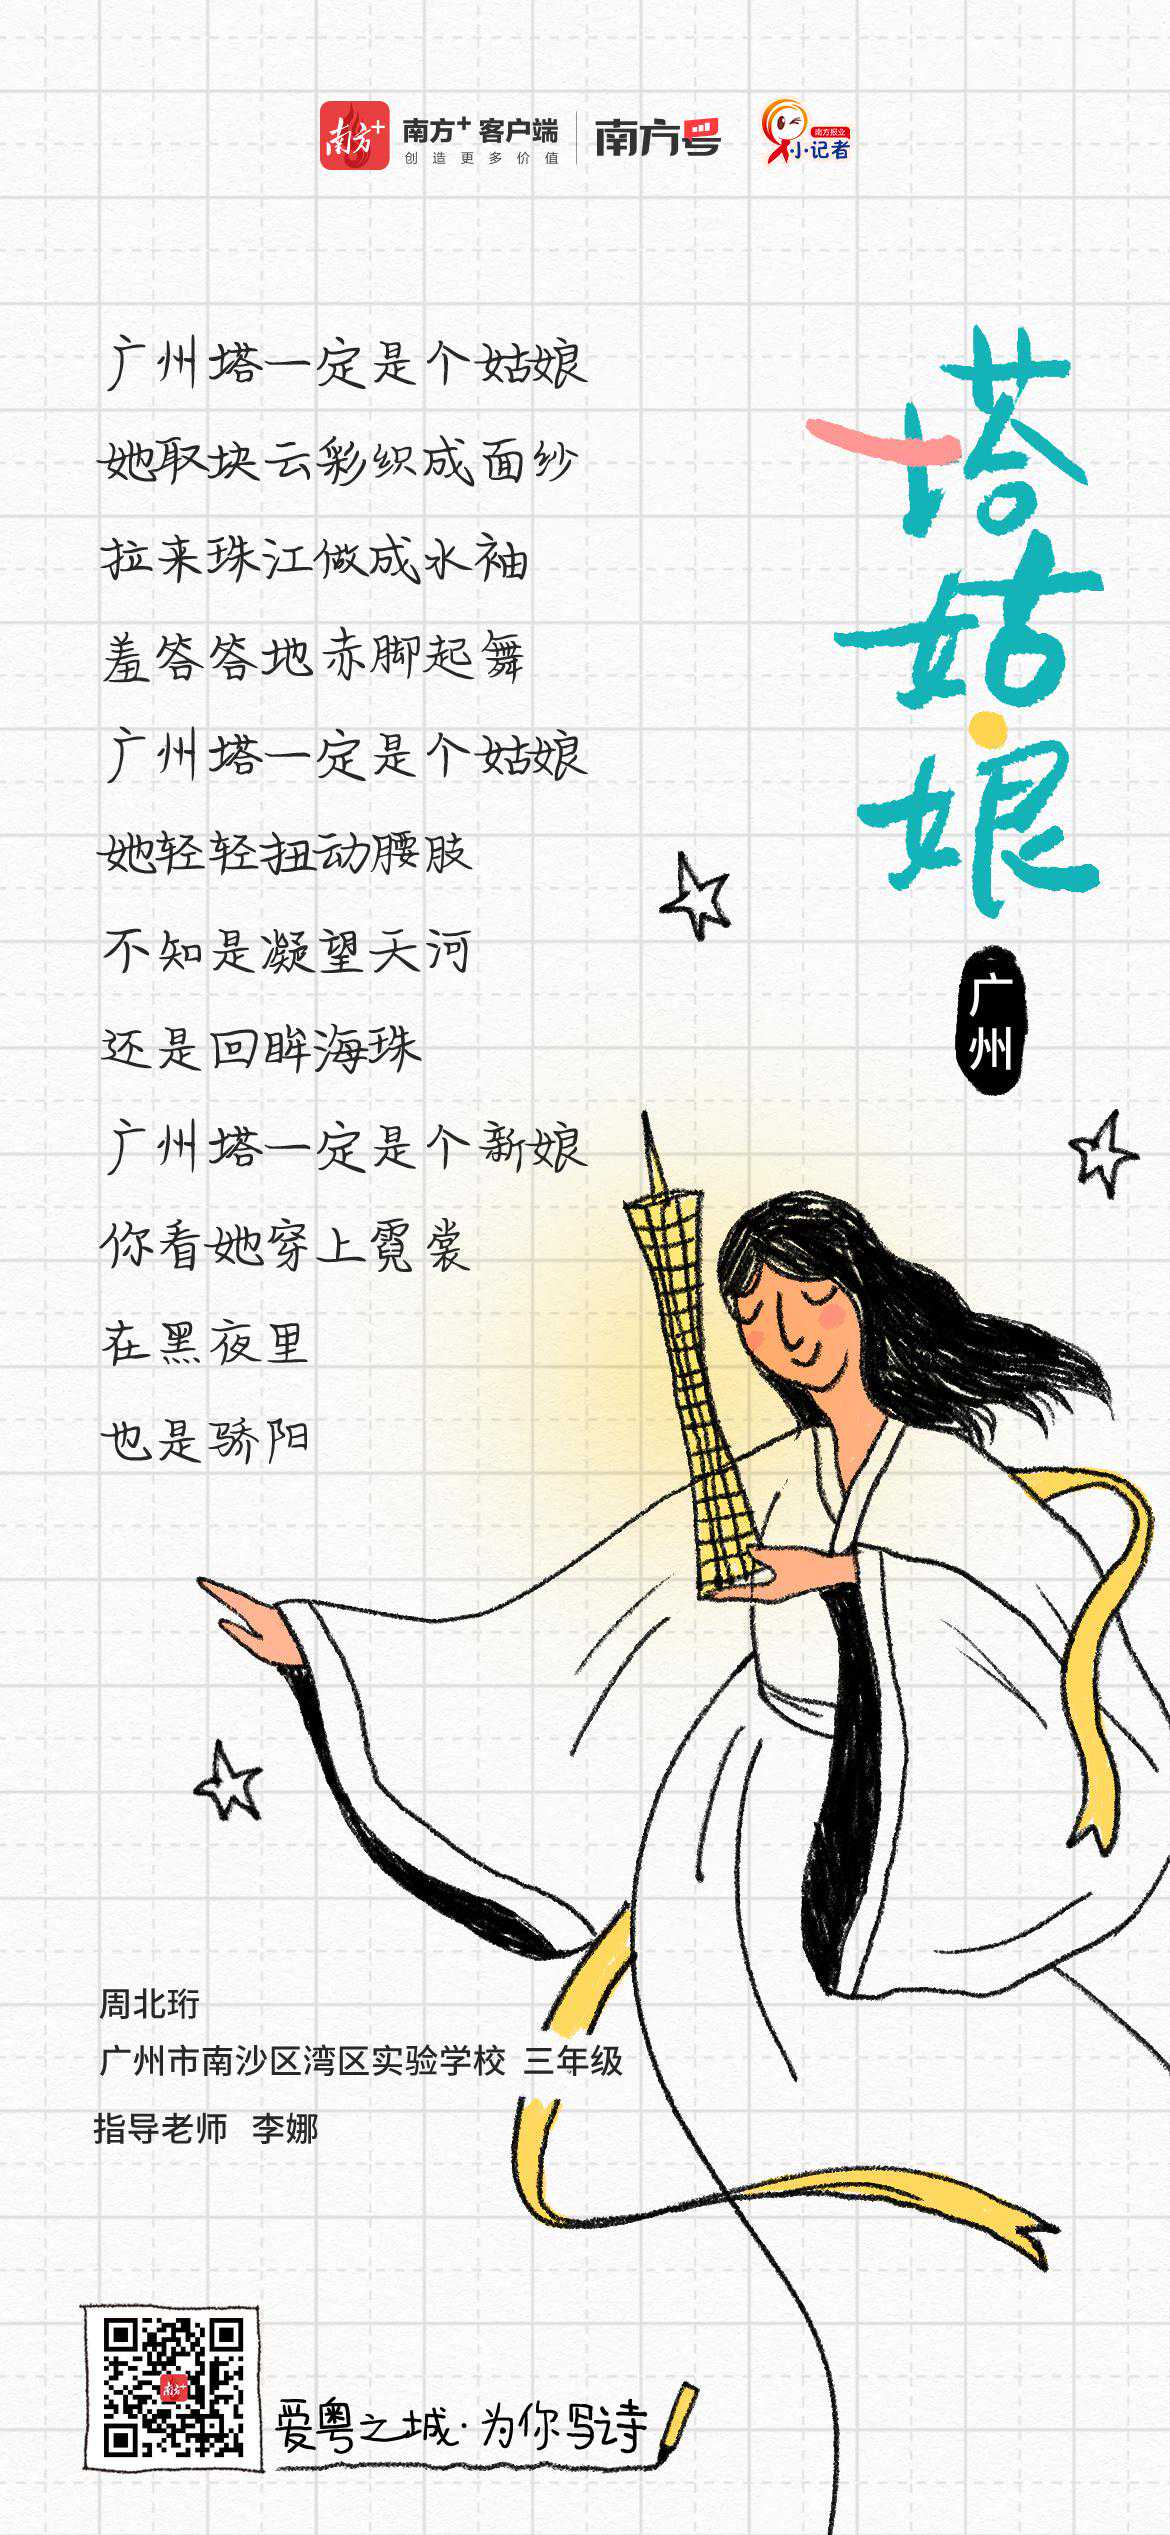 南方+
南方+ 客户端
创造更多价值
南方号
南方报业
小记者
塔姑娘
广州
广州塔一定是个姑娘
她取块云彩织成面纱
拉来珠江做成水袖
羞答答地赤脚起舞
广州塔一定是个姑娘
她轻轻扭动腰肢
不知是凝望天河
还是回眸海珠
广州塔一定是个新娘
你看她穿上霓裳
在黑夜里
也是骄阳
周北珩
广州市南沙区湾区实验学校 三年级
指导老师 李娜
南方+
爱粤之城·为你写诗